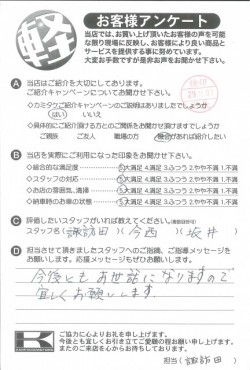 軽
お客様アンケート
当店では、お買い上げ頂いたお客様の声を可能
な限り現場に反映し、お客様により良い商品と
サービスを提供する事に努めています。
大変お手数ですが是非お声をお聞かせ下さい。
A 当店はご紹介を大切にしてあります。
ご紹介キャンペーンについてお聞かせ下さい。
◇カミタケご紹介キャンペーンのご説明はありましたでしょうか
はい いいえ
◇具体的にご紹介頂ける方とのご関係をお聞かせ頂けますでしょうか
ご親族 ご友人 職場の方 機会があれば紹介したい
B 当店を実際にご利用になった印象をお聞かせ下さい。
◇総合的な満足度 5.大満足 4.満足 3.ふつう 2.やや不満 1.不満
◇スタッフの対応 5.大満足 4.満足 3.ふつう 2.やや不満 1.不満
◇お店の雰囲気、清掃 5.大満足 4.満足 3.ふつう 2.やや不満 1.不満
◇納車時のお車の状態 5.大満足 4.満足 3.ふつう 2.やや不満 1.不満
C 評価したいスタッフがいれば教えてください。(複数回答可)
スタッフ名(諏訪田)(今西)(坂井)
D 担当させて頂きましたスタッフへのご指摘、ご指導メッセージを
お願いします。応援メッセージもぜひお願いします。
今後ともお世話になりますので
宜しくお願いします。
K
ご協力に心よりお礼を申し上げます。
今後とも宜しくお引き立てご愛顧の程お願い申し上げます。
またのご来店を心からお待ちしております。
担当(諏訪田)